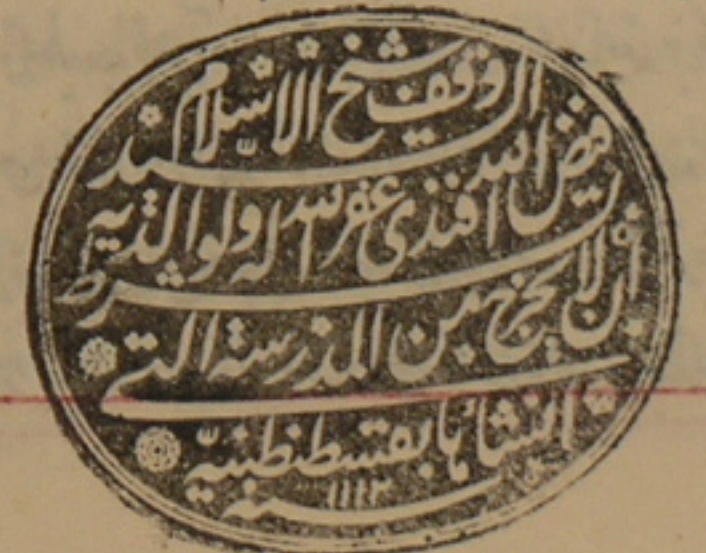 وقف شيخ الاسلام السيد
فيض الله افندى غفر الله له ولوالديه
بشرط أن لا يخرج من المدرسة التي
انشاها بقسطنطينيّة
سنه ١١١٣